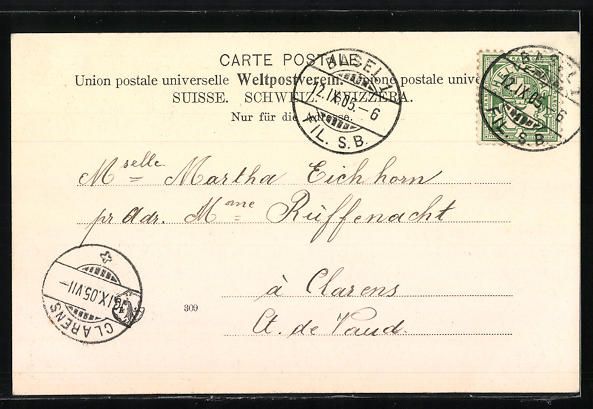 CARTE POSTALE.
Union postale universelle Weltpostverein. Unione postale
SUISSE. SCHWEIZ. SVIZZERA.
Nur für die Adresse.
BASEL 1
12.IX.05.-6
FIL. S.B.
BASEL 1
12.IX.05.-6
FIL. S.B.
Mselle Martha Eichhorn
pr adr. Mme Rüffenacht
à Clarens
Ct. de Vaud.
IX.05.VII-
CLARENS
309